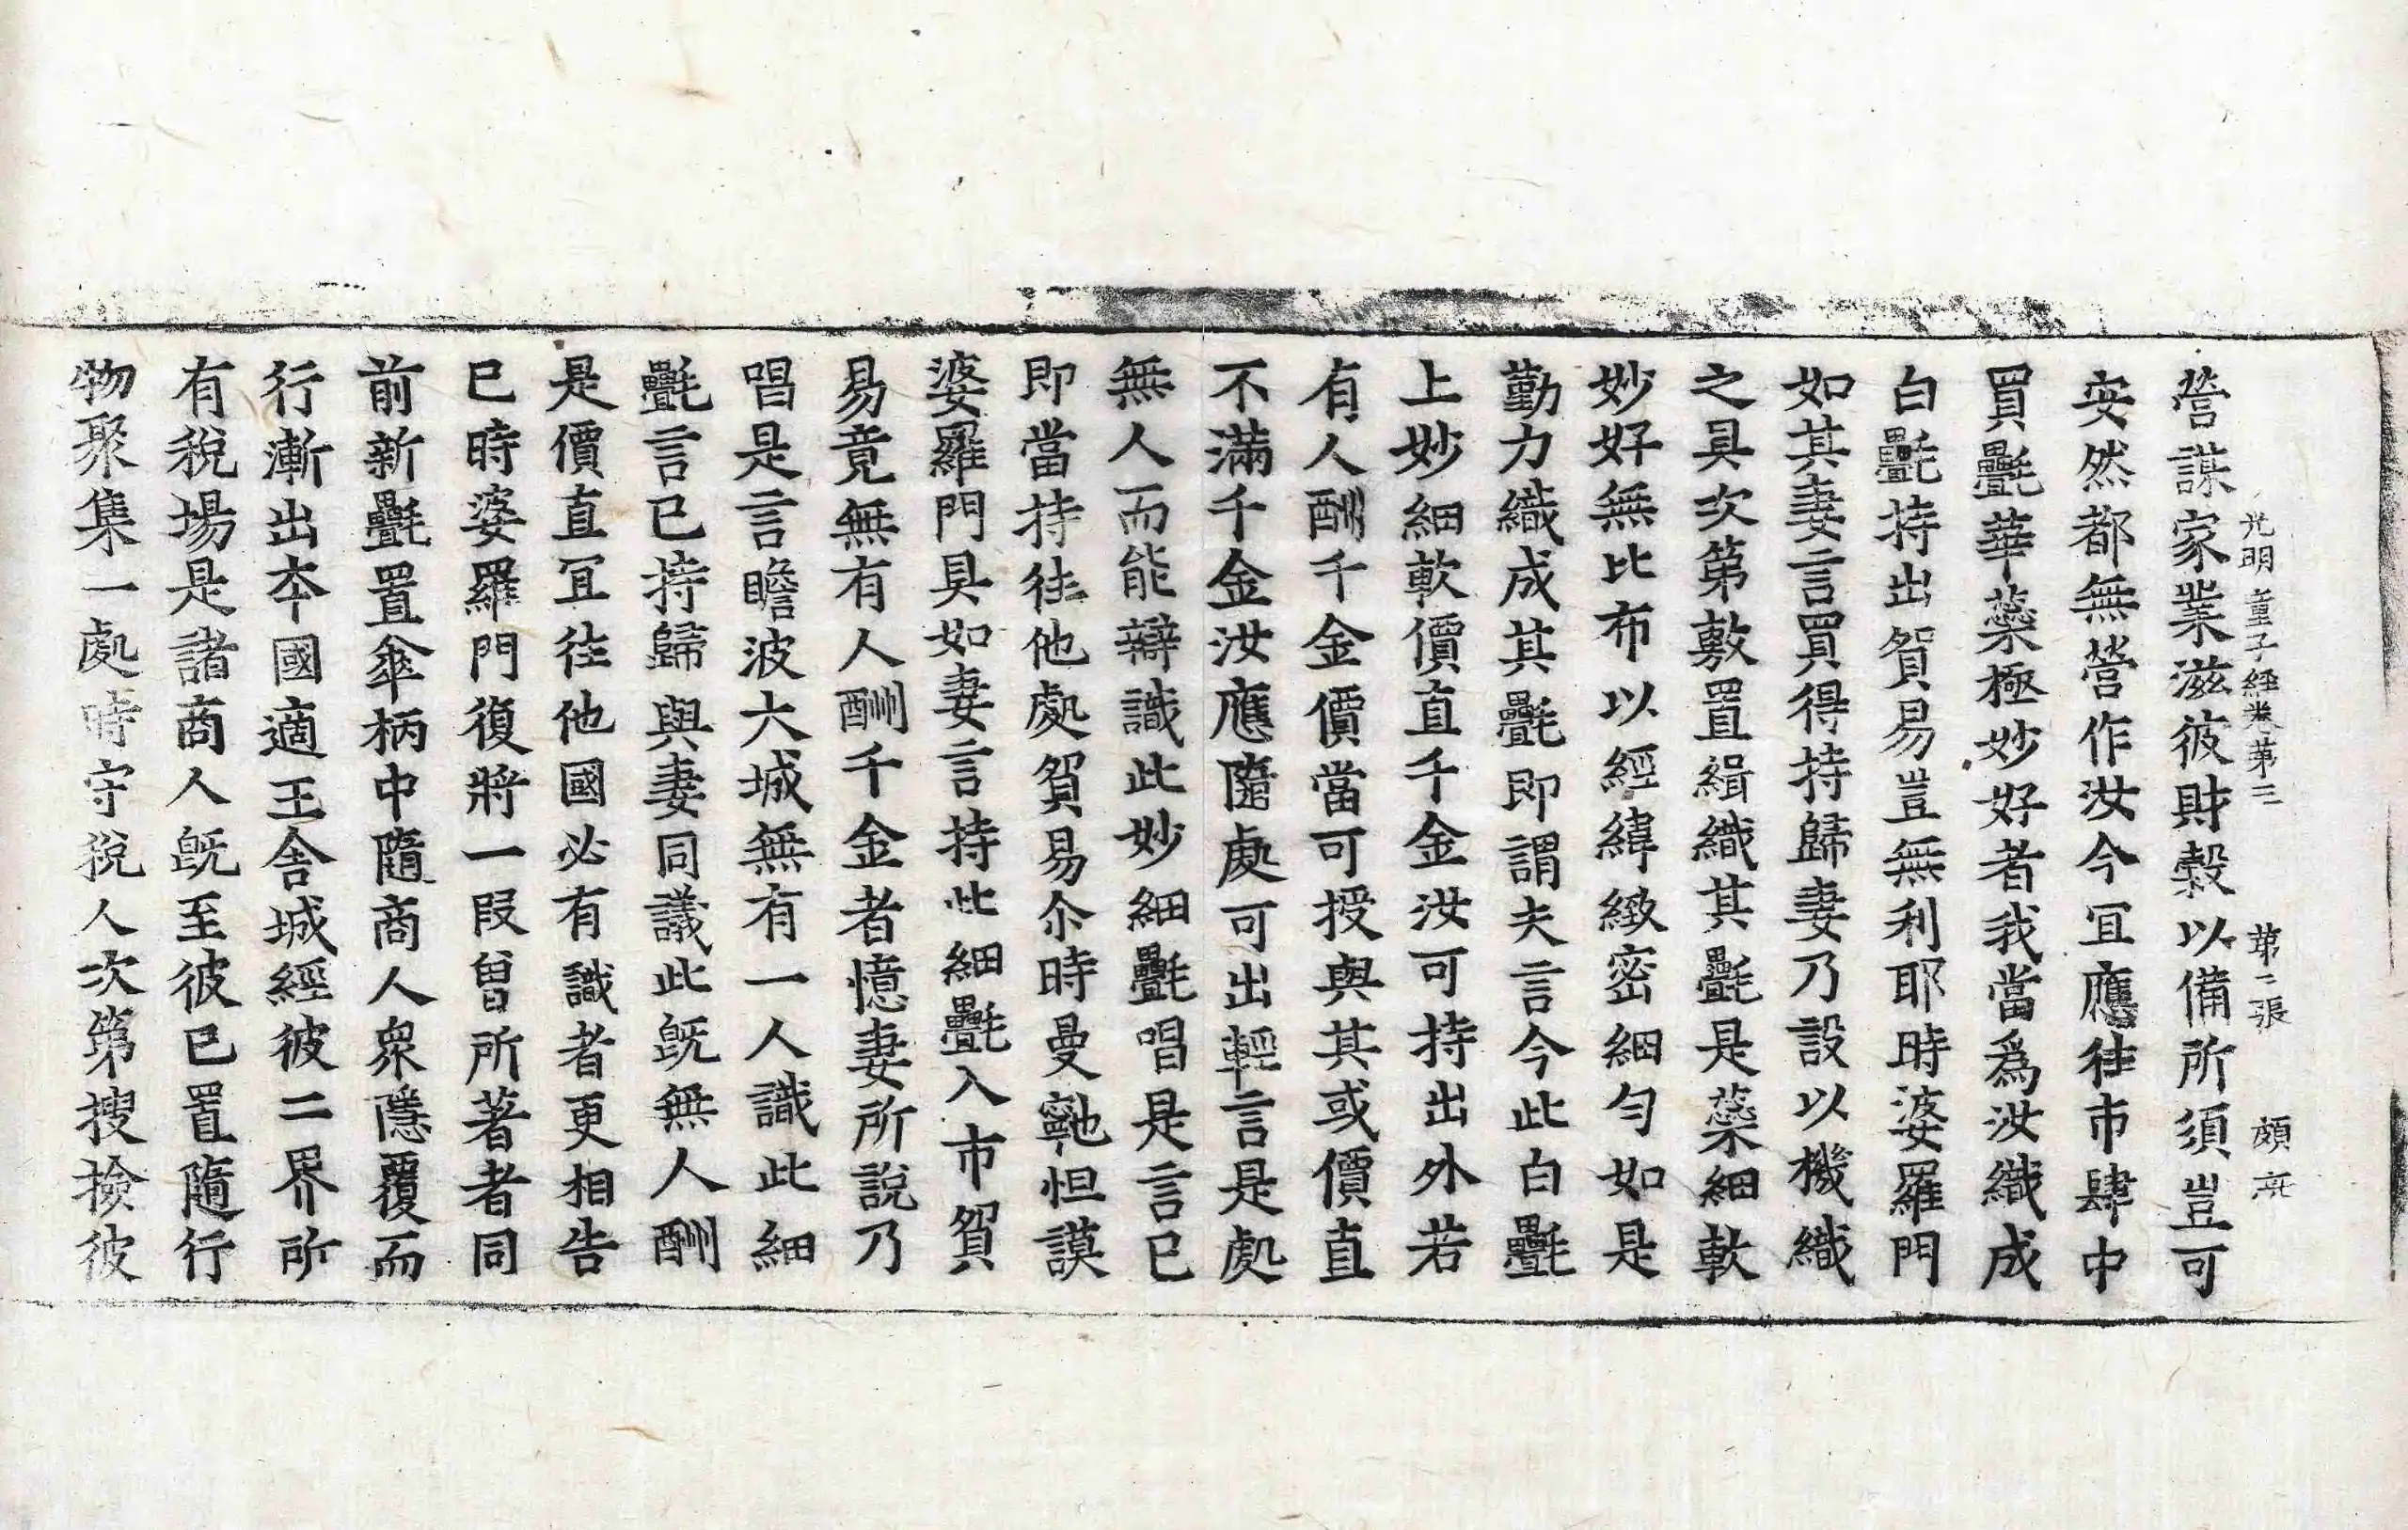 光明童子經卷第三 第二張 頗
營謀家業滋彼財穀以備所須豈可
安然都無營作汝今冝應往市肆中
買㲲華蘂極妙好者我當爲汝織成
白㲲持出貿易豈無利耶時婆羅門
如其妻言買得持歸妻乃設以機織
之具次第敷置緝織其㲲是蘂細軟
妙好無比布以經緯緻密細勻如是
勤力織成其㲲即謂夫言今此白㲲
上妙細軟價直千金汝可持出外若
有人酬千金價當可授與其或價直
不滿千金汝應隨處可出輕言是處
無人而能辯識此妙細㲲唱是言已
即當持往他處貿易尒時曼䩜怛謨
婆羅門具如妻言持此細㲲入市貿
易竟無有人酬千金者憶妻所說乃
唱是言瞻波大城無有一人識此細
㲲言已持歸與妻同議此旣無人酬
是價直冝往他國必有識者更相告
已時婆羅門復將一段曾所著者同
前新㲲置傘柄中隨商人衆隱覆而
行漸出本國適王舍城經彼二界所
有稅場是諸商人旣至彼已置隨行
物聚集一處時守稅人次第搜撿彼